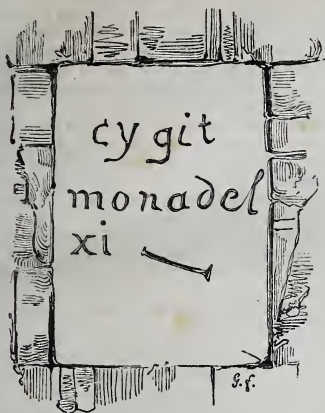 cy git
monadel
xi
G.f.